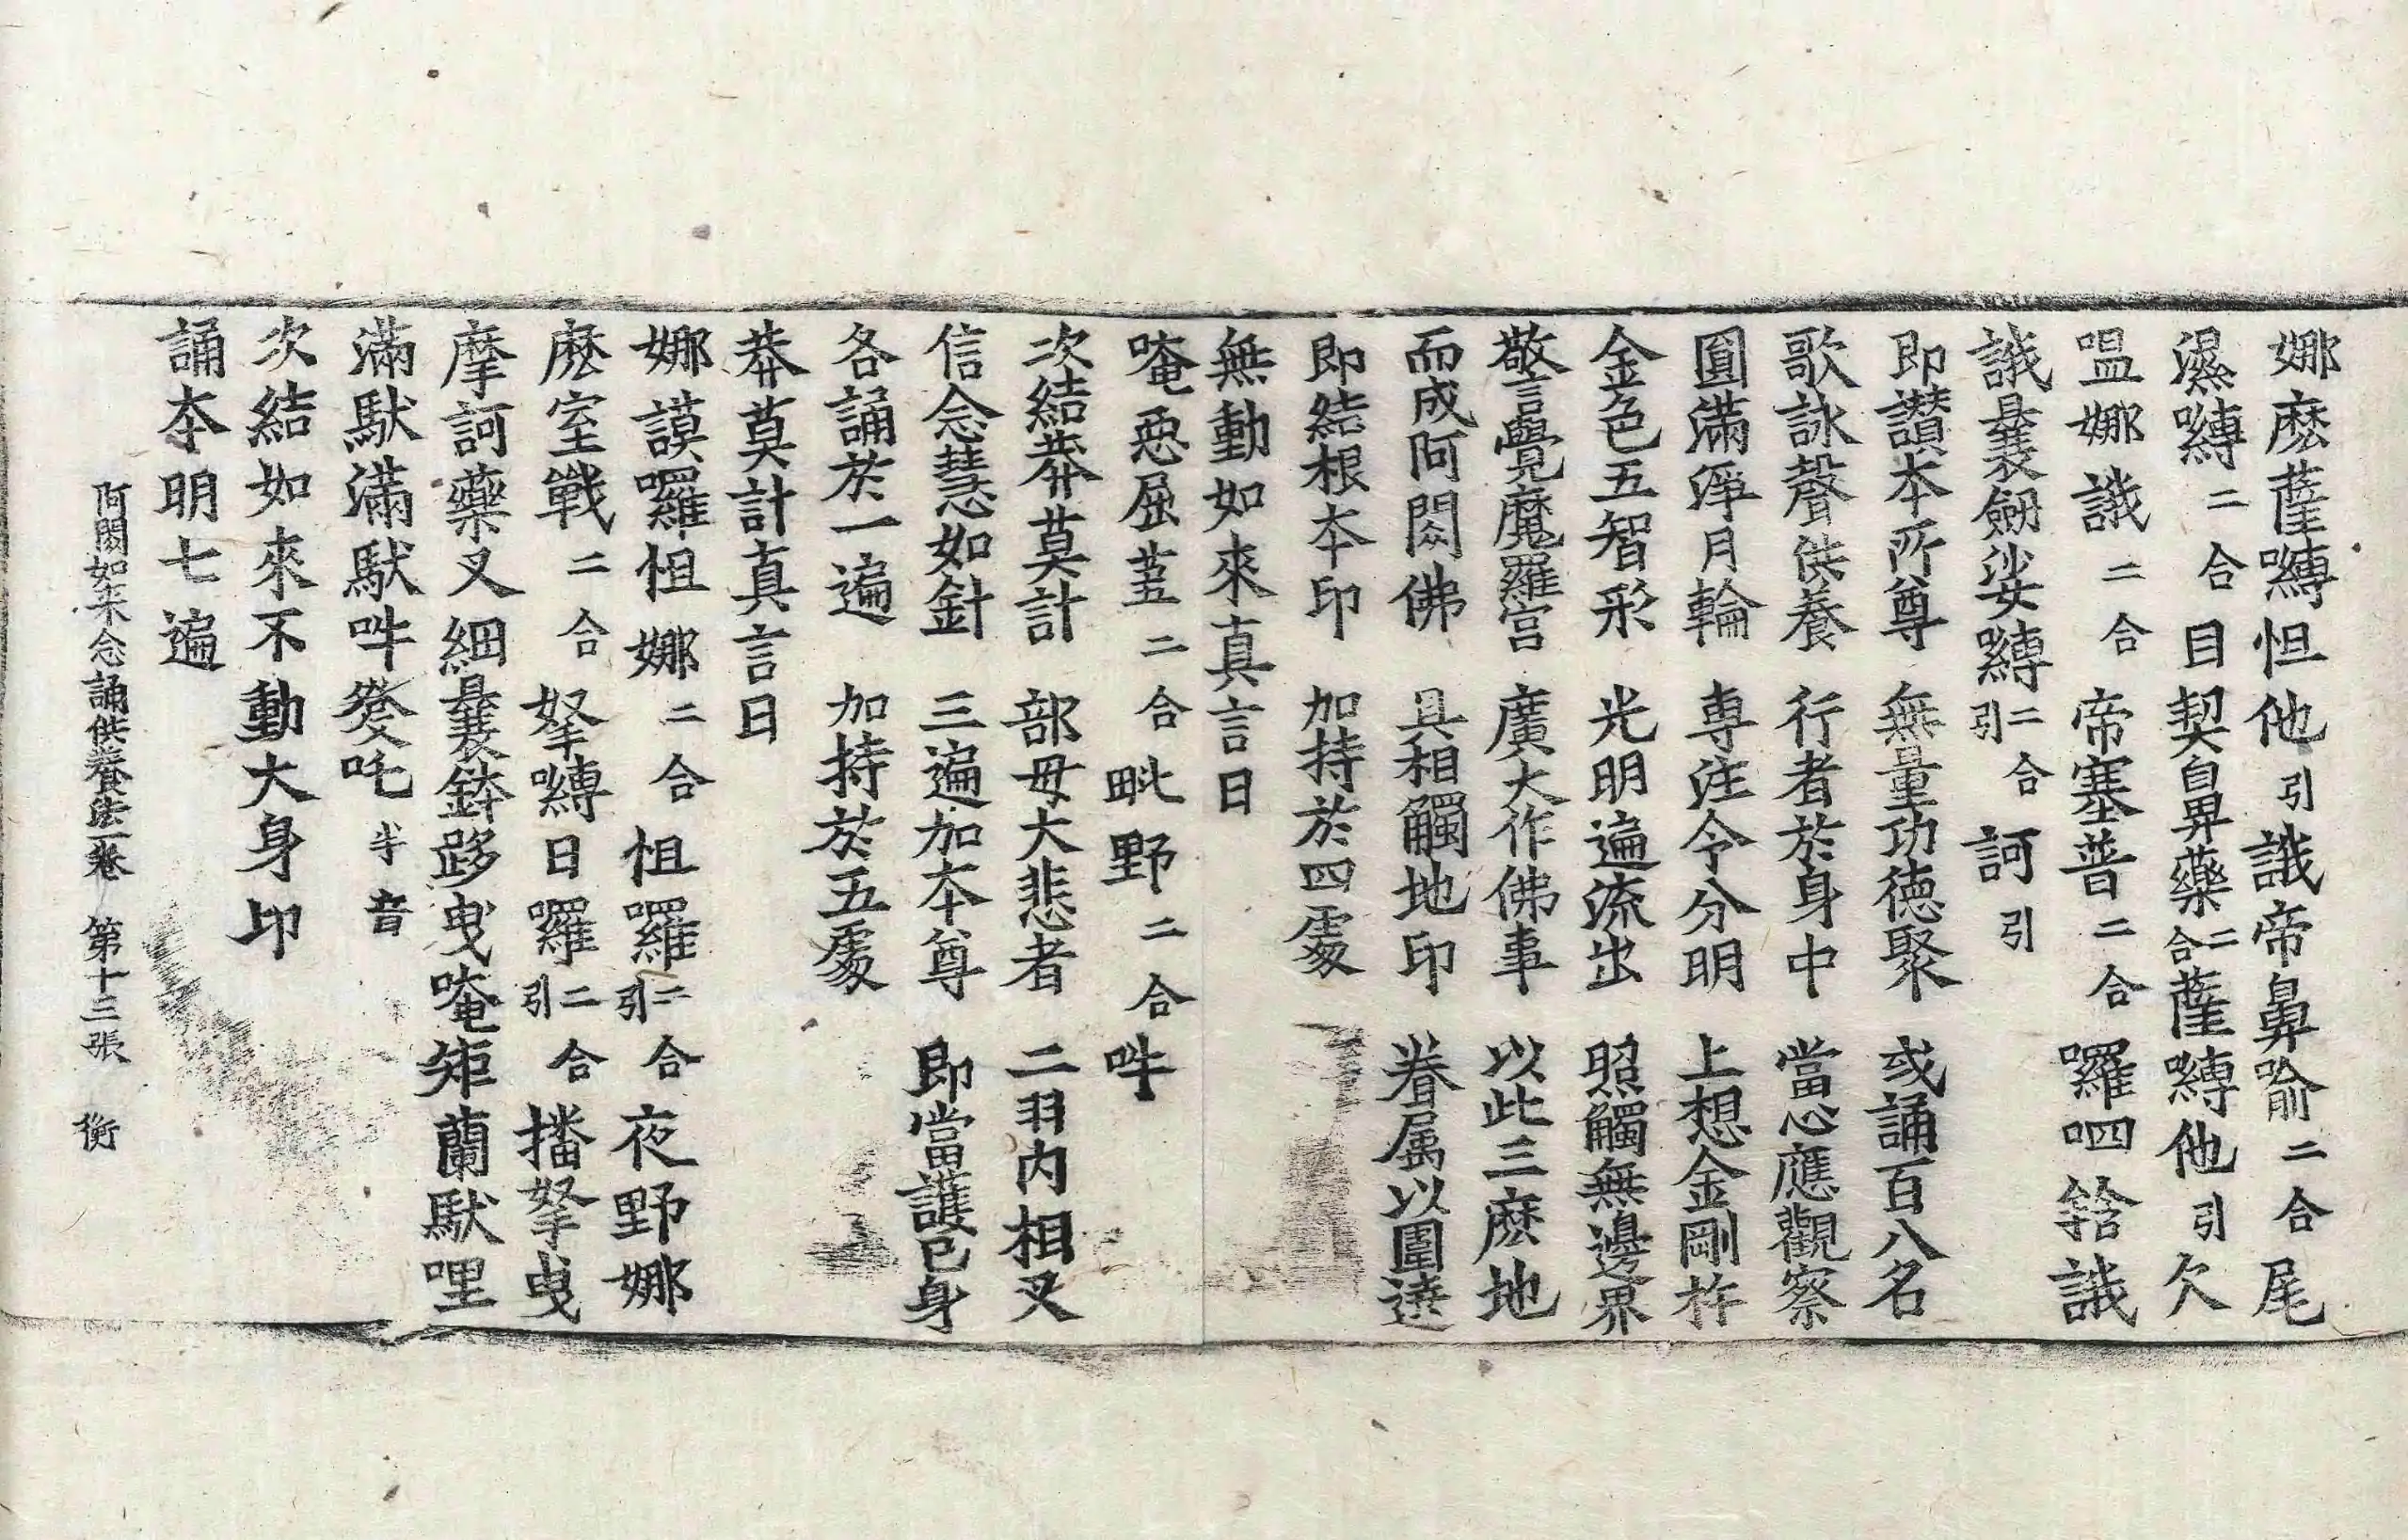 娜麽薩嚩怛他引誐帝鼻喻二合尾
濕嚩二合目契鼻藥二合薩嚩他引欠
嗢娜誐二合帝塞普二合囉呬𤚥誐
誐曩劔娑嚩二合引訶引
即讚本所尊　無量功德聚　或誦百八名
歌詠聲供養　行者於身中　當心應觀察
圓滿淨月輪　專注令分明　上想金剛杵
金色五智形　光明遍流出　照觸無邊界
敬言覺魔羅宮　廣大作佛事　以此三麽地
而成阿閦佛　具相觸地印　眷属以圍遶
即結根本印　加持於四處
無動如來真言曰
唵惡屈蒭二合毗野二合吽
次結莽莫計　部母大悲者　二羽内相叉
信念慧如針　三遍加本尊　即當護己身
各誦於一遍　加持於五處
莽莫計真言曰
娜謨囉怛娜二合怛囉二合引夜野娜
麽室戰二合拏嚩日囉二合引播拏曳
摩訶藥叉細曩鉢跢曳唵矩蘭䭾哩
滿䭾滿䭾吽發吒半音
次結如來不動大身印
誦本明七遍
阿閦如来念誦供養法一卷　第十三張　衡